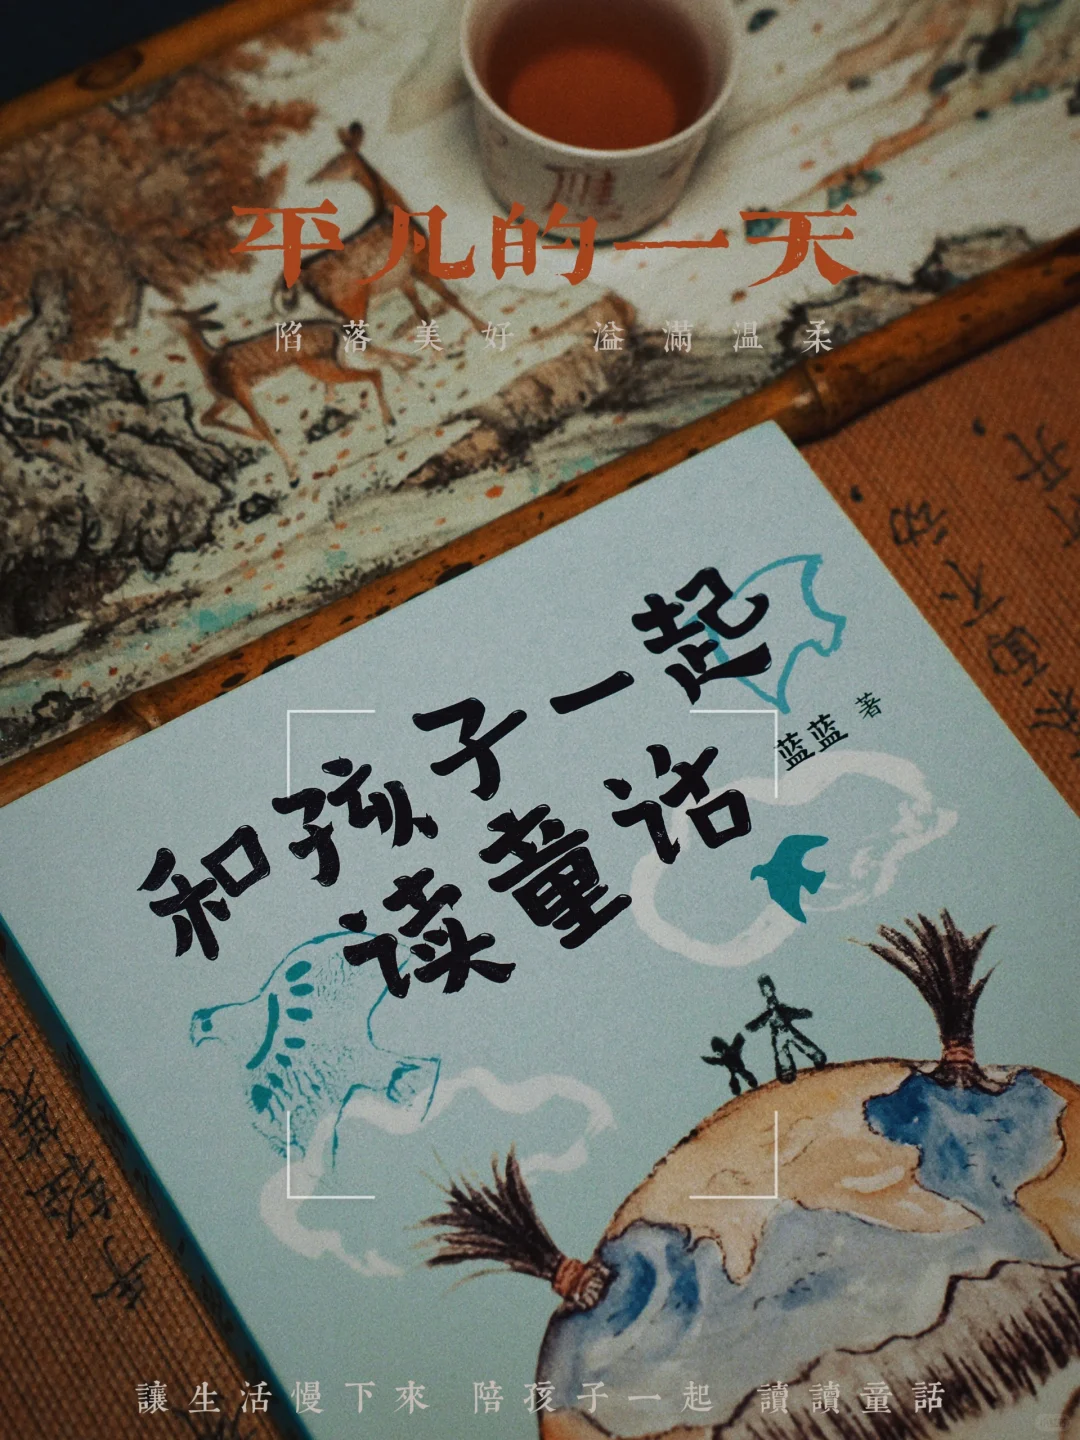 平凡的一天
陷落美好 溢滿温柔
和孩子一起
读童话
蓝蓝 著
讓生活慢下來 陪孩子一起 讀讀童話